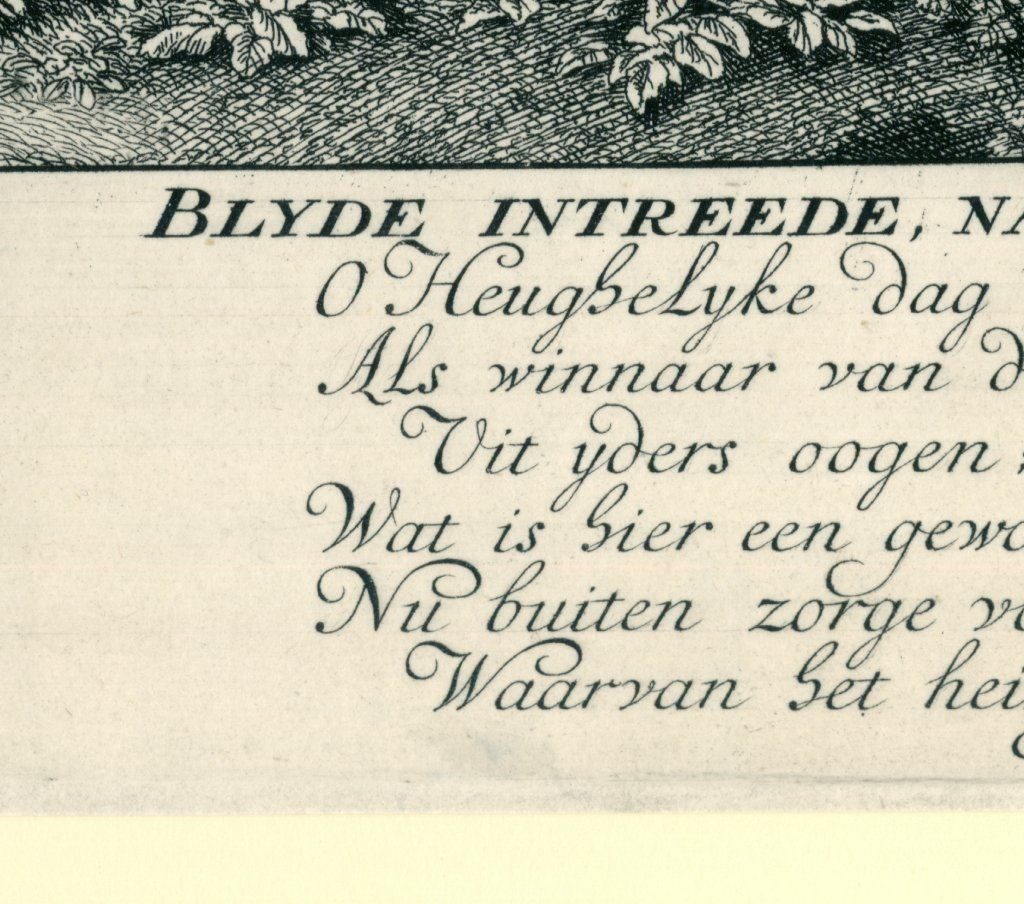 BLYDE INTREEDE, NA
O Heughelyke dag
Als winnaar van d
Uit yders oogen
Wat is hier een gewo
Nu buiten zorge vo
Waarvan het hei